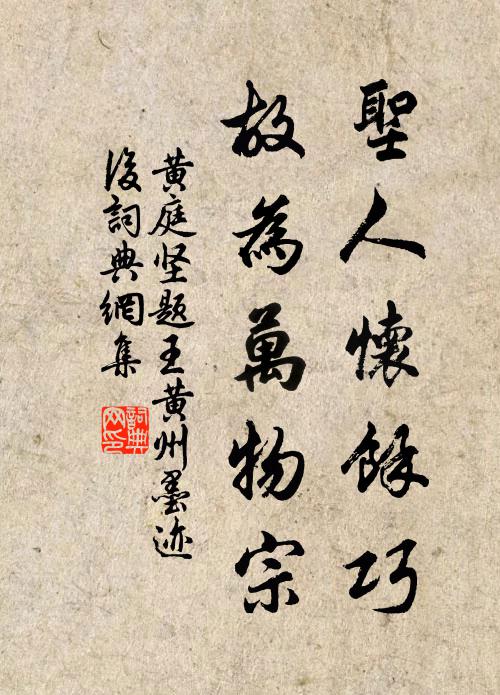 聖人懷餘巧
故為萬物宗
黄庭坚题王黄州墨迹
後詞典網集
詞典
网印